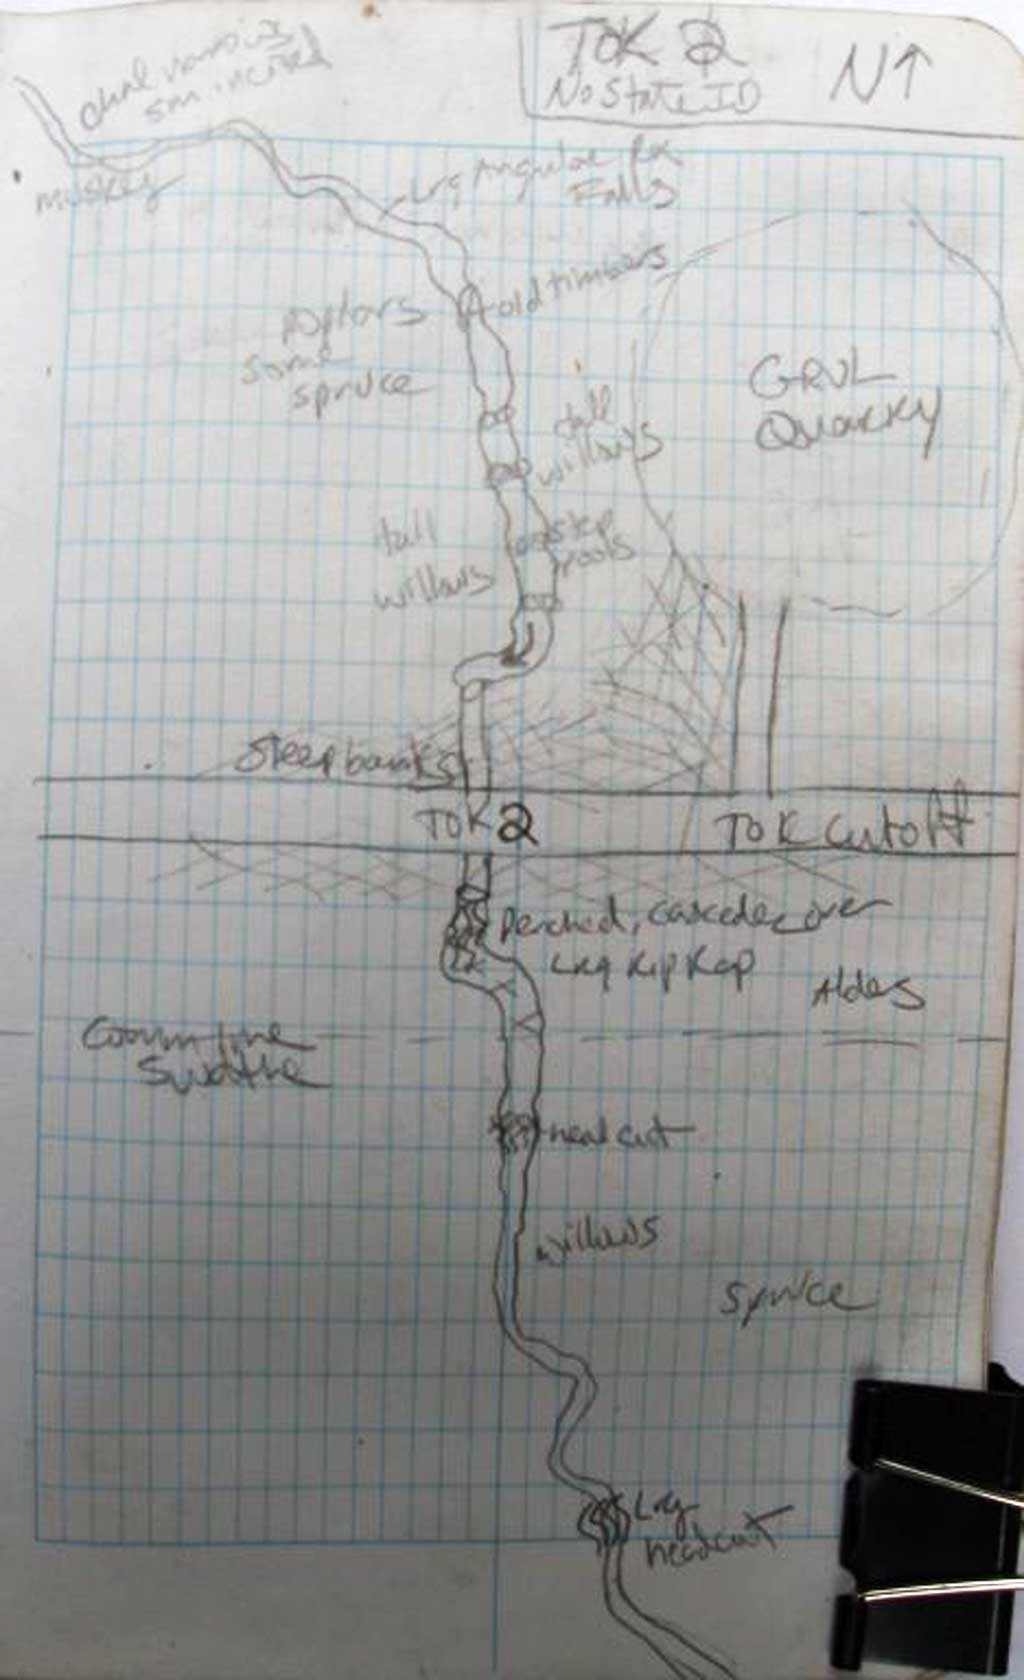 TOK 2
No State ID
N↑
chnl narrows
smincised
muskeg
Lrg Angular Rx
Falls
old timbers
Poplars
some
spruce
GRVL
Quarry
tall
willows
step
pools
tall
willows
Steep banks
TOK 2
TOK Cutoff
Perched, cascades over
Lrg Rip Rap
Alders
Comm line
Swathe
headcut
willows
Spruce
Lrg
headcut